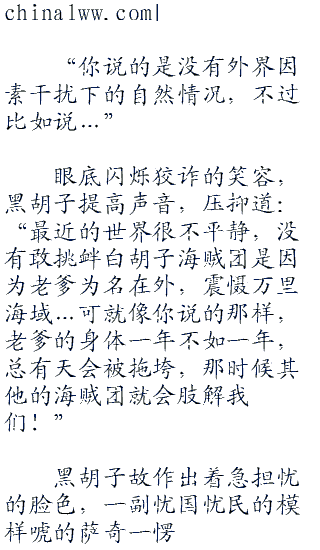 china1ww.com|
“你说的是没有外界因
素干扰下的自然情况，不过
比如说…”
眼底闪烁狡诈的笑容，
黑胡子提高声音，压抑道：
“最近的世界很不平静，没
有敢挑衅白胡子海贼团是因
为老爹为名在外，震慑万里
海域…可就像你说的那样，
老爹的身体一年不如一年，
总有天会被拖垮，那时候其
他的海贼团就会肢解我
们！”
黑胡子故作出着急担忧
的脸色，一副忧国忧民的模
样唬的萨奇一愣